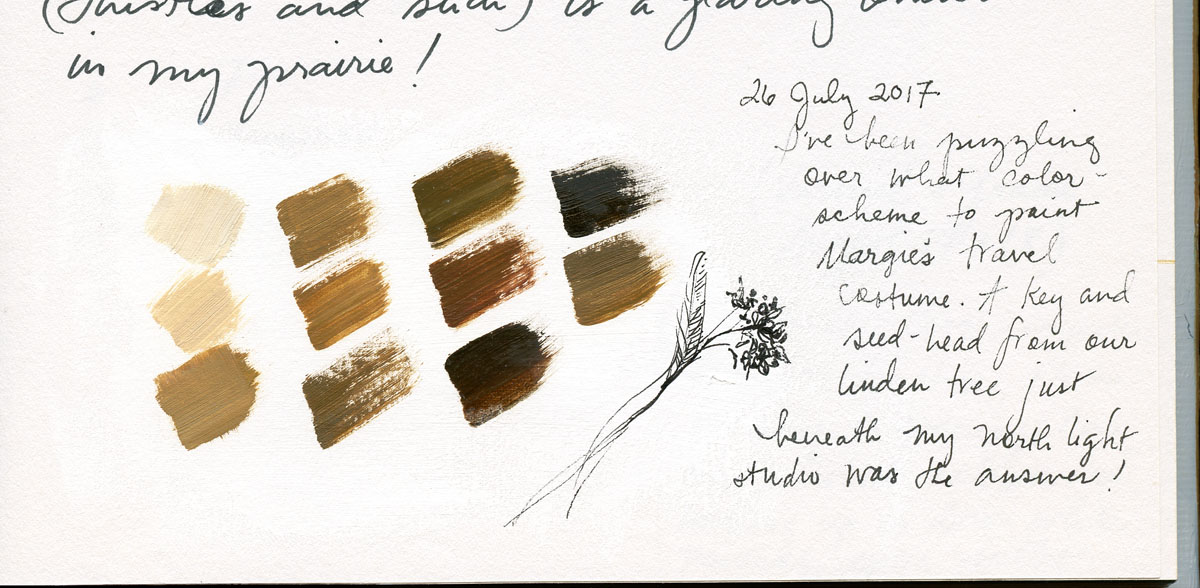 (thistles and such) is a glaring
in my prairie!
26 July 2017
I've been puzzling
over what color-
scheme to paint
Margie's travel
costume. A key and
seed-head from our
linden tree just
beneath my north light
studio was the answer!